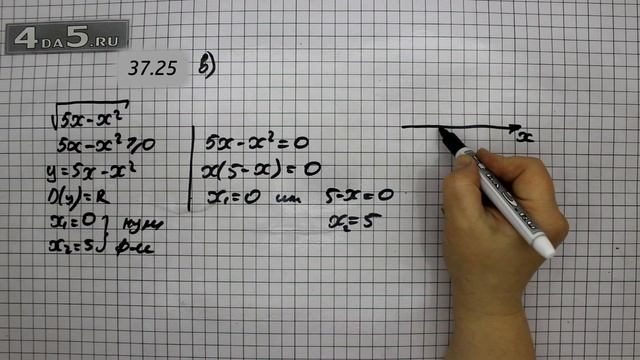 4DA5.RU
37.25 в)
√5x-x²
5x-x²≥0
y=5x-x²
D(y)=R
x₁=0 } нули
x₂=5 } ф-ии
5x-x²=0
x(5-x)=0
x₁=0 или 5-x=0
x₂=5
x